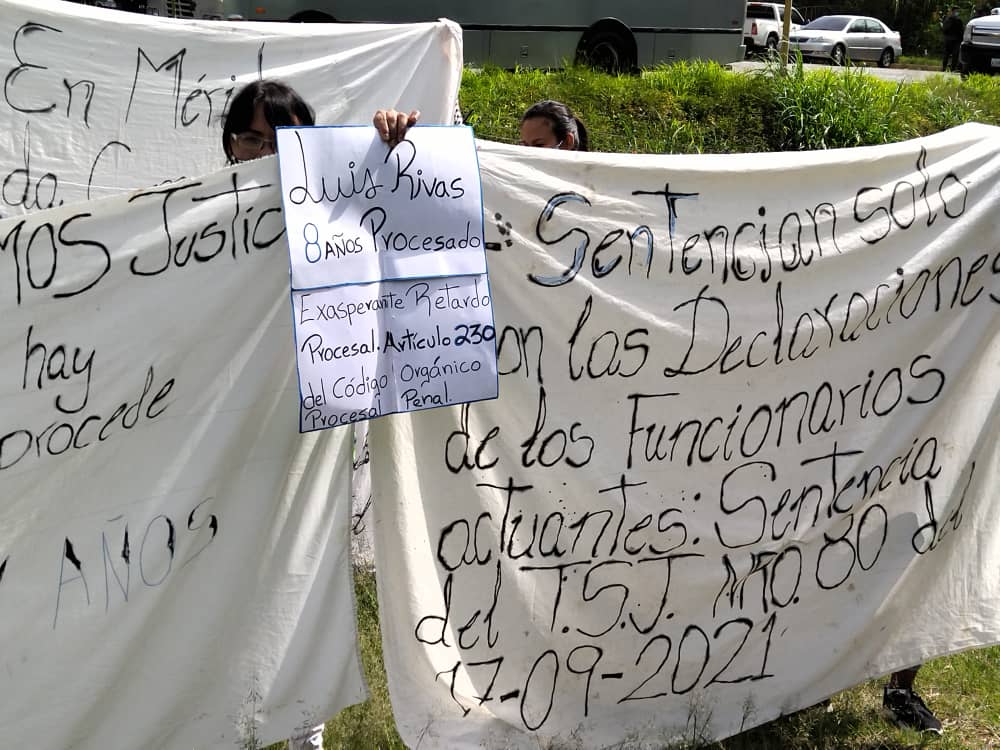 En Mérid
da. C
mos Justic
hay
procede
AÑOS
Luis Rivas
8 AÑOS Procesado
Exasperante Retardo
Procesal. Artículo 230
del Código Orgánico
Procesal Penal.
Sentencian solo
con las Declaraciones
de los Funcionarios
actuantes: Sentencia
del T.S.J. NRO. 80 del
17-09-2021